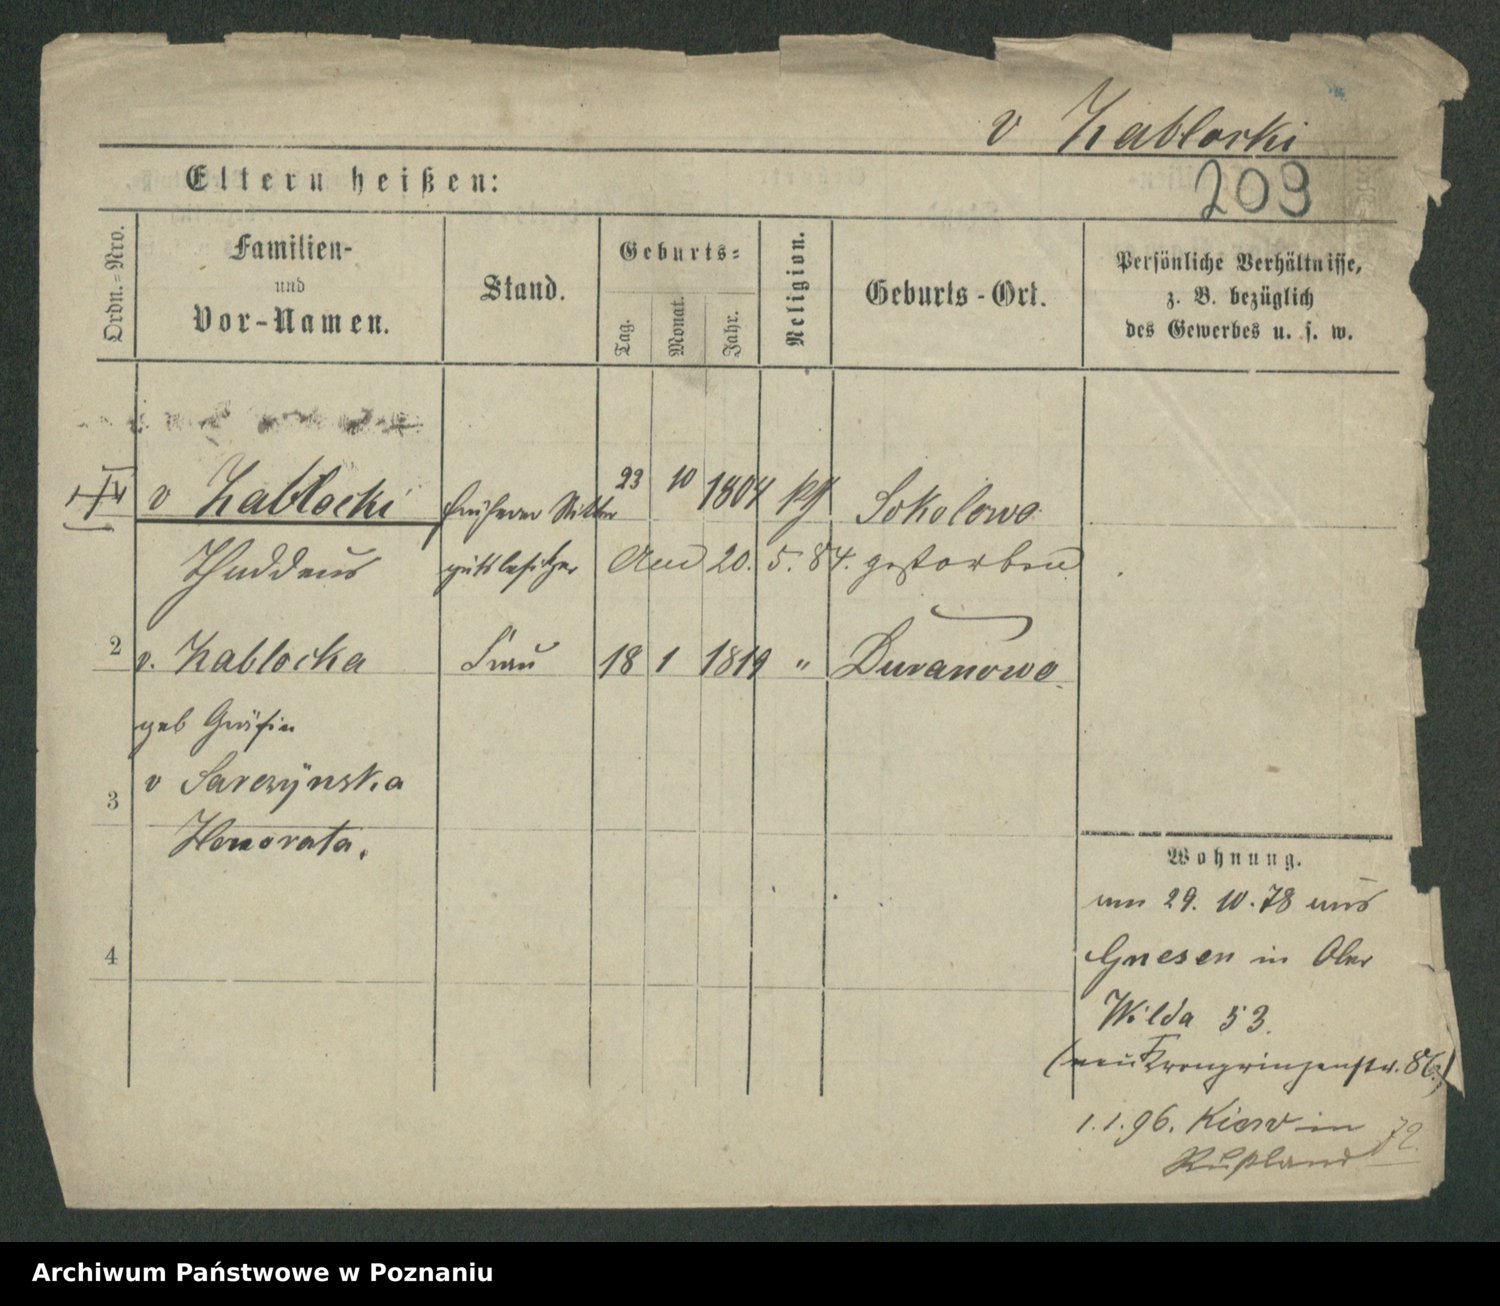 v Zablocki
209
Eltern heißen:
Ordn.=Nro.
Familien-
und
Vor-Namen.
Stand.
Geburts=
Tag.
Monat.
Jahr.
Religion.
Geburts-Ort.
Persönliche Verhältnisse,
z. B. bezüglich
des Gewerbes u. s. w.
v Zablocki früherer Ritter 23 10 1804 Sokolowo
Thaddeus gutsbesitzer Am 20. 5. 84. gestorben
2 v. Zablocka Frau 18 1 1819 " Duranowo
geb Gräfin
v Sarczynska
3
Honorata.
4
Wohnung.
am 29. 10. 78 aus
Gnesen in Ober
Wilda 53.
(neu Kronprinzenstr. 86)
1. 1. 96. Kiew in
Rußland 72
Archiwum Państwowe w Poznaniu